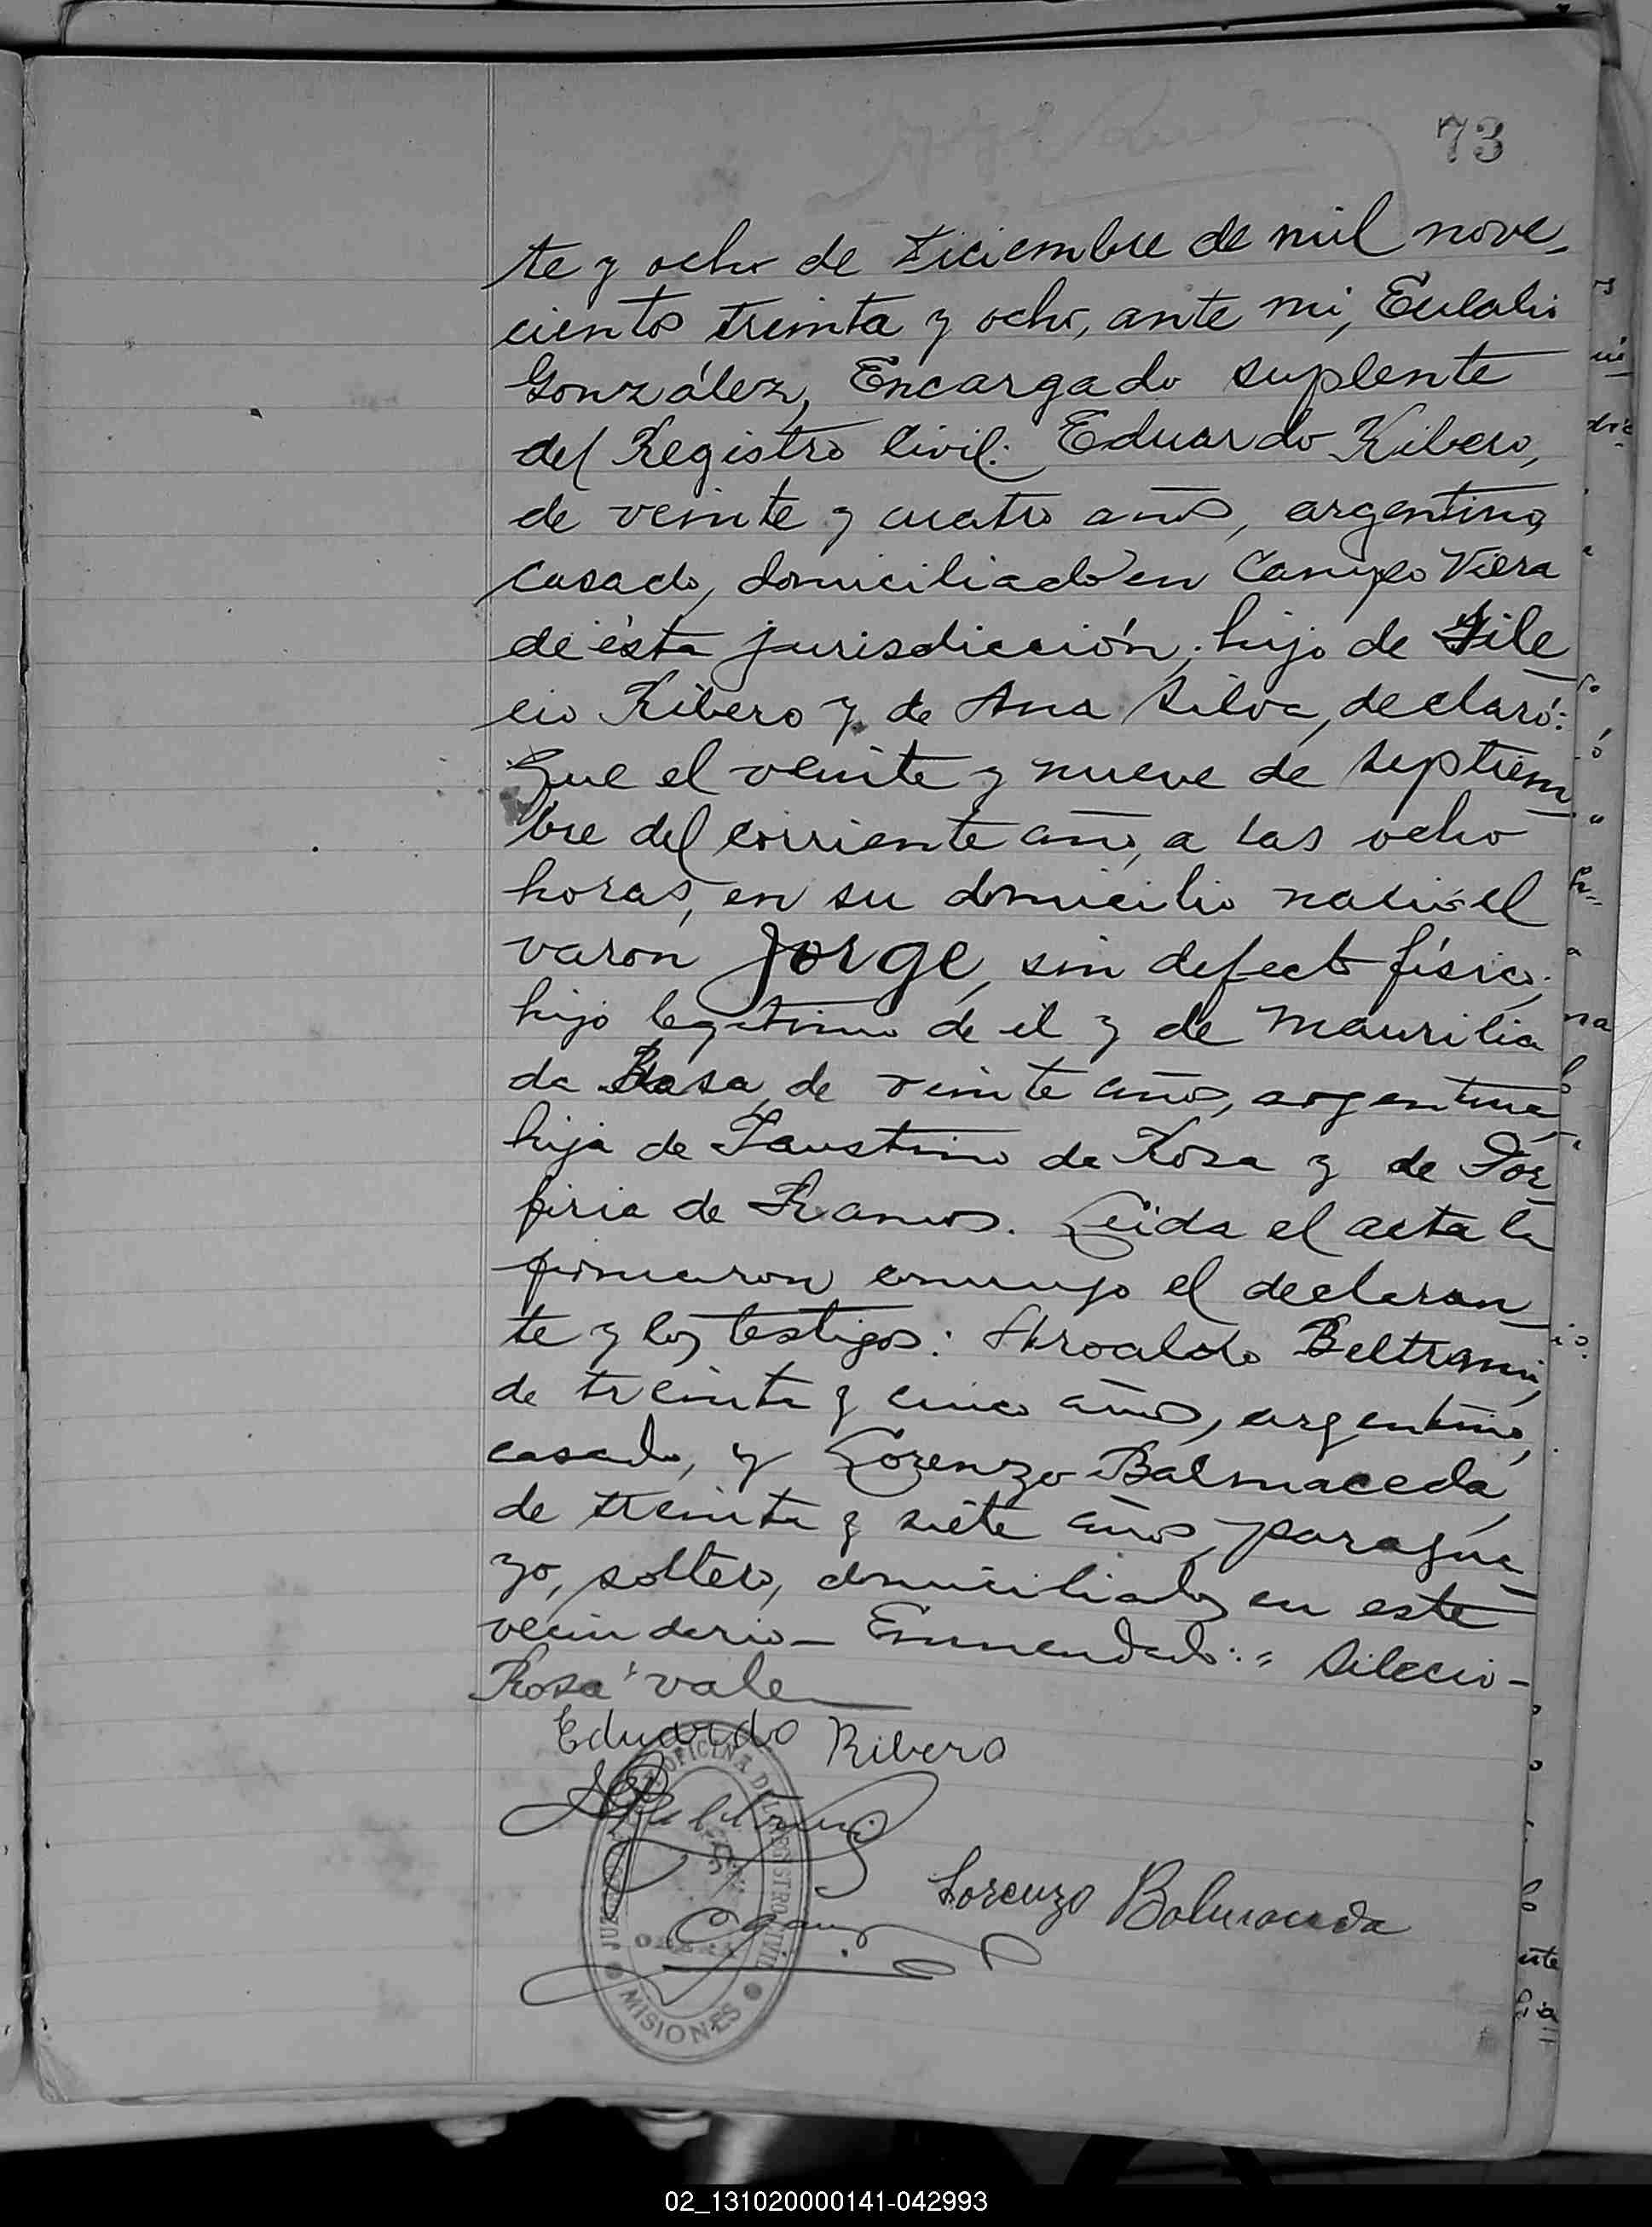 73
te y ocho de Diciembre de mil nove_
cientos treinta y ocho, ante mi, Eulalio
González, Encargado suplente
del Registro Civil: Eduardo Ribero,
de veinte y cuatro años, argentino,
casado, domiciliado en Campo Viera
de ésta jurisdicción; hijo de Sile_
cio Ribero y de Ana Silva, declaró:
Que el veinte y nueve de septiem_
bre del corriente año, a las ocho
horas, en su domicilio nació el
varon Jorge, sin defecto físico,
hijo legitimo de el y de Maurilia
da Rosa, de veinte años, argentina,
hija de Faustino da Rosa y de Por_
firia de Ramos. Leida el acta la
firmaron conmigo el declaran_
te y los testigos: Aroaldo Beltrami,
de treinta y cinco años, argentino,
casado, y Lorenzo Balmaceda,
de treinta y siete años, paragua_
yo, soltero, domiciliados en este
vecindario_ Enmendado: " Silecio-
Rosa" vale
Eduardo Ribero
Beltrami
Lorenzo Balmaceda
OFICINA DEL REGISTRO CIVIL
MISIONES
02_131020000141-042993